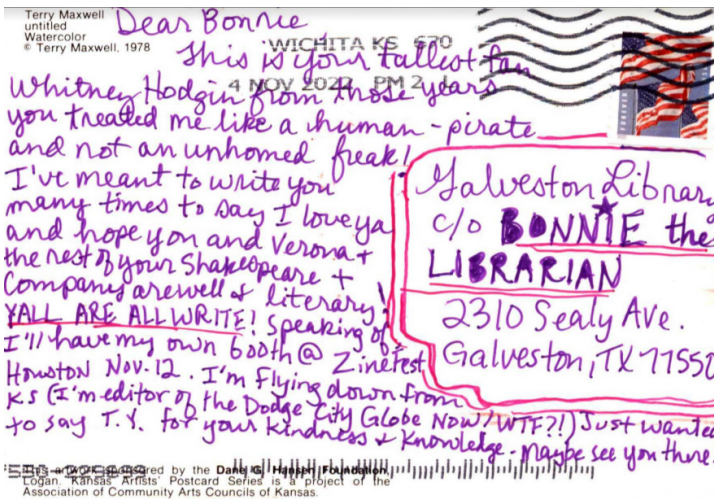 Terry Maxwell
untitled
Watercolor
© Terry Maxwell, 1978
WICHITA KS 670
4 NOV 2022 PM 2 L
FOREVER
Dear Bonnie,
This is your tallest fan
Whitney Hodgin from those years
you treated me like a human-pirate
and not an unhomed freak!
I've meant to write you
many times to say I love ya
and hope you and Verona +
the rest of your Shakespeare +
Company are well & literary!
YALL ARE ALL WRITE! Speaking of
I'll have my own booth @ ZineFest
Houston Nov. 12. I'm flying down from
KS (I'm editor of the Dodge City Globe NOW! WTF?!) Just wanted
to say T.Y. for your kindness & knowledge - Maybe see you there.
Galveston Library
c/o BONNIE the
LIBRARIAN
2310 Sealy Ave.
Galveston, TX 77550
This artwork sponsored by the Dane G. Hansen Foundation,
Logan. Kansas Artists' Postcard Series is a project of the
Association of Community Arts Councils of Kansas.